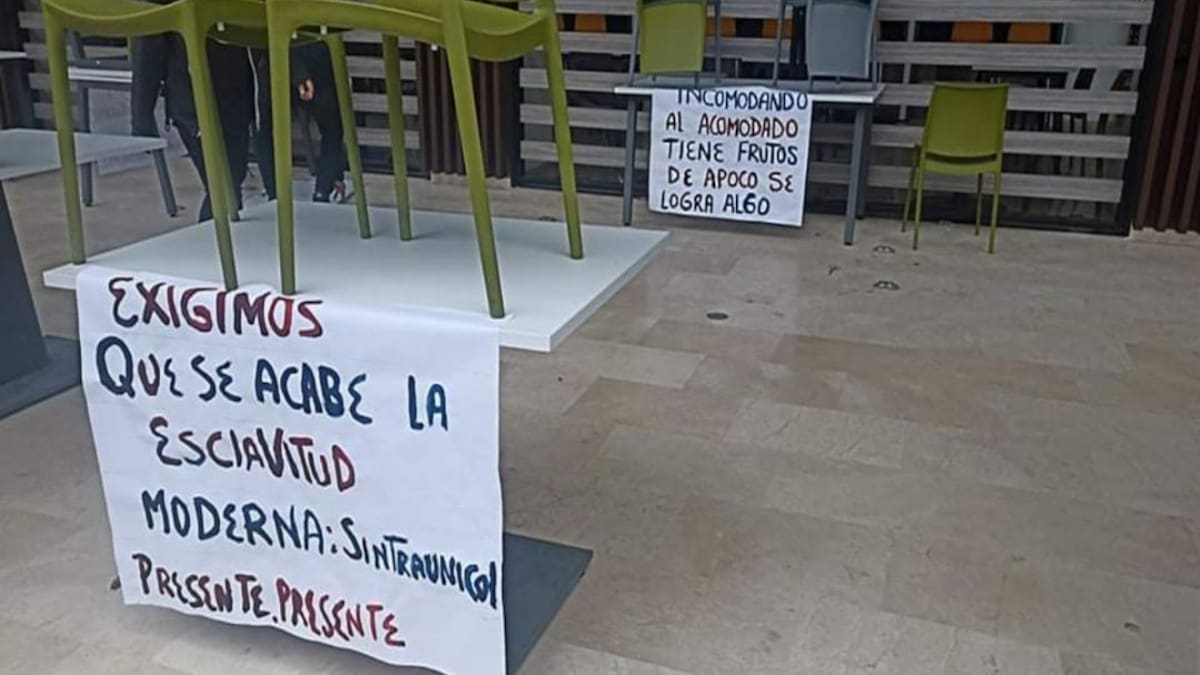 EXIGIMOS
QUE SE ACABE LA
ESCLAVITUD
MODERNA: SINTRAUNICOL
PRESENTE. PRESENTE
INCOMODANDO
AL ACOMODADO
TIENE FRUTOS
DE APOCO SE
LOGRA ALGO